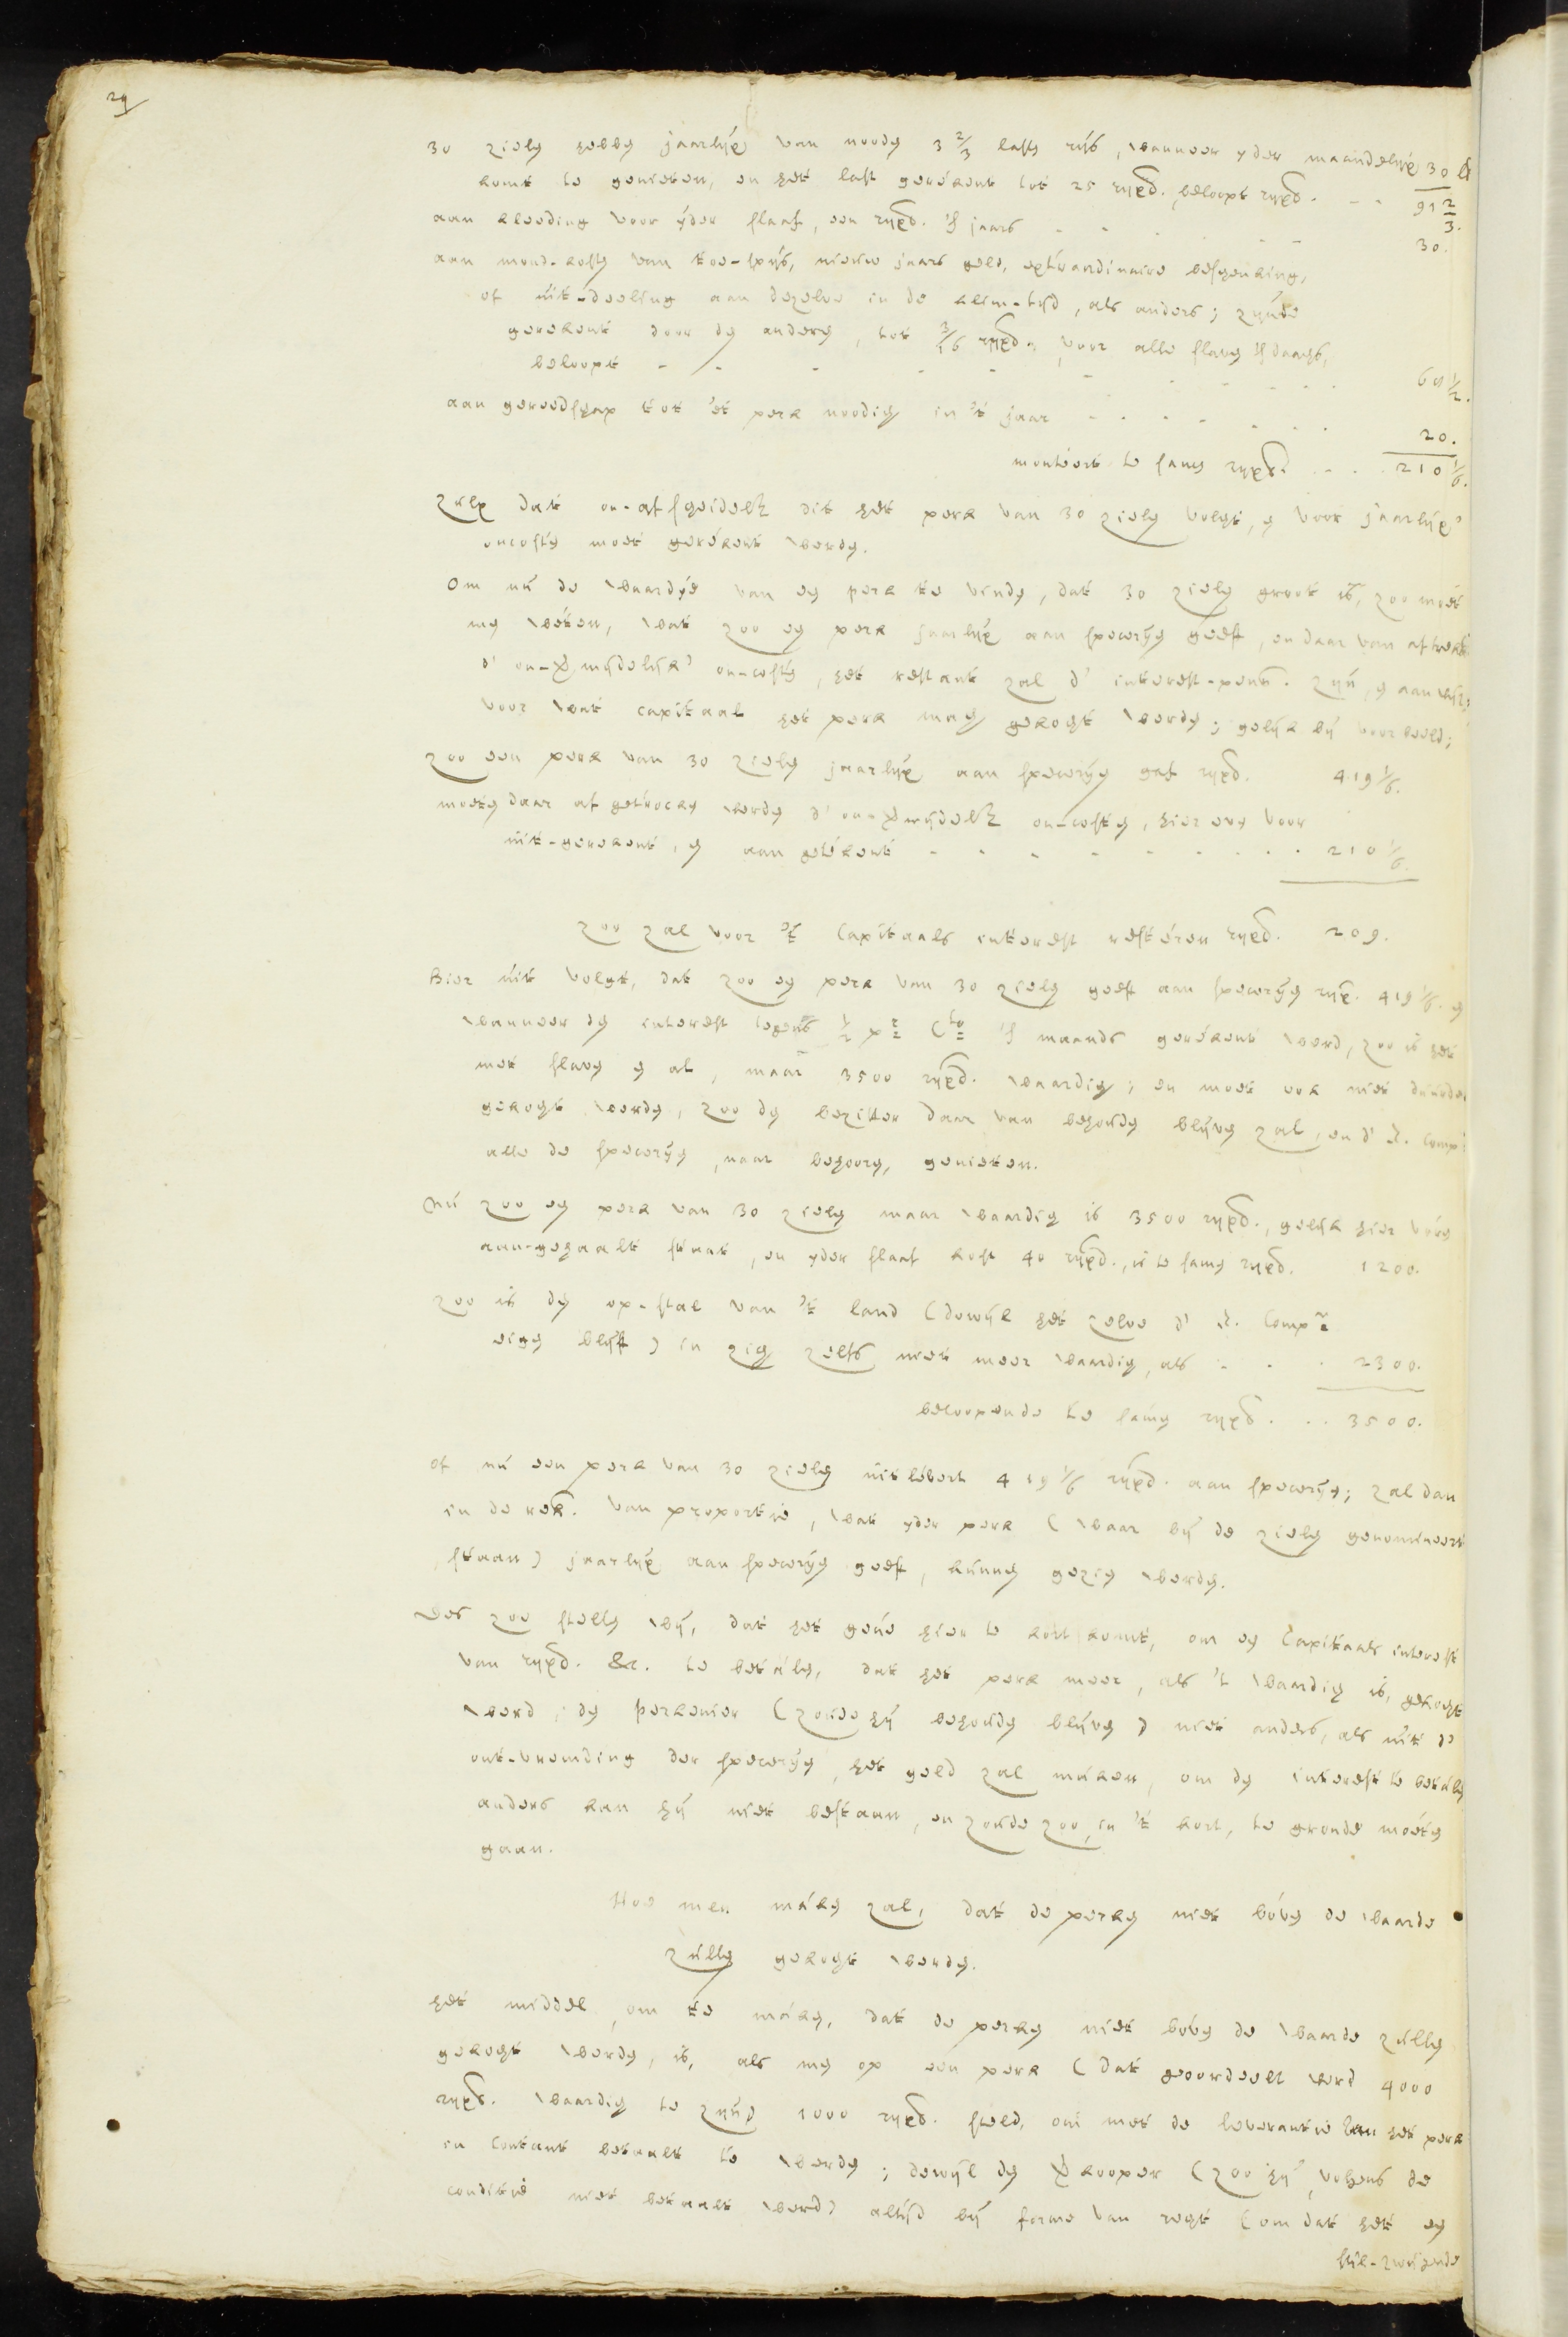 29
30 zielen hebben jaarlijx van nooden 3 2/3 lasten rijs, wanneer yder maandelijx 30 lb
komt te genieten, en het last gerékent tot 25 rijxd. beloopt rijxd. - - 91 2/3.
aan kleeding voor ÿder slaaf, een rijxd. 's jaars - - - - - 30.
aan mond-kosten van toe-spijs, nieuw jaars geld, extraordinaire beschenking,
of uit-deeling aan dezelve in de klim-tijd, als anders; zynde
gerekent door den anderen, tot 3/16 rijxd. voor alle slaven 's daags,
beloopt - - - - - - - - - - 68 1/2.
aan gereedschap tot 'et perk noodig in 't jaar - - - - - - - 20.
monteert te samen rijxd. - - - 210 1/6.
zulx dat on-afscheidelk dit het perk van 30 zielen volgt, en voor jaarlijx'
oncosten moet gerékent werden.
Om nu de waardÿe van een perk te vinden, dat 30 zielen groot is, zoo moet
men wéten, wat zoo een perk jaarlijx aan specerÿen geeft, en daar van aftrekk
d' on-vermijdelijk' on-costen, het restant zal d' interest-penn. zijn, en aanwijzen
voor wat capitaal het perk mag gekogt werden; gelijk bij voorbeeld;
zoo een perk van 30 zielen jaarlijx aan specerÿen gaf rijxd. 419 1/6.
moeten daar af getrocken werden d' on-vermijdelk on-costen, hier even voor
uit-gerekent, en aan getékent - - - - - - - - - 210 1/6.
zoo zal voor 't Capitaals interest restéren rijxd. 209.
Hier uit volgt, dat zoo een perk van 30 zielen geeft aan specerÿen rijx. 419 1/6. en
wanneer den interest tegens 1/2 pr Cto 's maands gerékent werd, zoo is het
met slaven en al, maar 3500 rijxd. waardig; en moet ook niet duurder
gekogt werden, zoo den bezitter daar van behouden blijven zal, en d' E. Comp:
alle de specerÿen, naar behooren, genieten.
Nu zoo een perk van 30 zielen maar waardig is 3500 rijxd., gelijk hier vóren
aan-gehaalt staat, en yder slaaf kost 40 rijxd., is te samen rijxd. 1200.
zoo is den op-stal van 't land (dewijl het zelve d' E. Compe
eigen blijft) in zig zelfs niet meer waardig, als - - - 2300.
beloopende te samen rijxd. - - 3500.
of nu een perk van 30 zielen uitlévert 419 1/6 rijxd. aan specerÿen; zal dan
in de rek. van proportie, wat yder perk (waar bij de zielen genomineert
staan) jaarlijx aan specerÿen geeft, kunnen gezien werden.
Des zoo stellen wij, dat het gene hier te kort komt, om een Capitaals interest
van rijxd. &c. te betálen, dat het perk meer, als 't waardig is, gekogt
werd; den perkenier (zoude hij behouden blijven) niet anders, als uit d'
ont-vremding der specerÿen, het geld zal máken, om den interest te betálen
anders kan hij niet bestaan, en zoude zoo, in 't kort, te gronde moeten
gaan.
Hoe men máken zal, dat de perken niet bóven de waarde
zullen gekogt werden.
Het middel, om te máken, dat de perken niet bóven de waarde zullen
gekogt werden, is, als men op een perk (dat geoordeelt werd 4000
rijxd. waardig te zijn) 1000 rijxd. steld, om met de leverantie van het perk
in contant betaalt te werden; dewijl den verkooper (zoo hij, volgens de
conditie niet betaalt werd) altijd bij forme van regt (om dat het een
stil-zwijgende